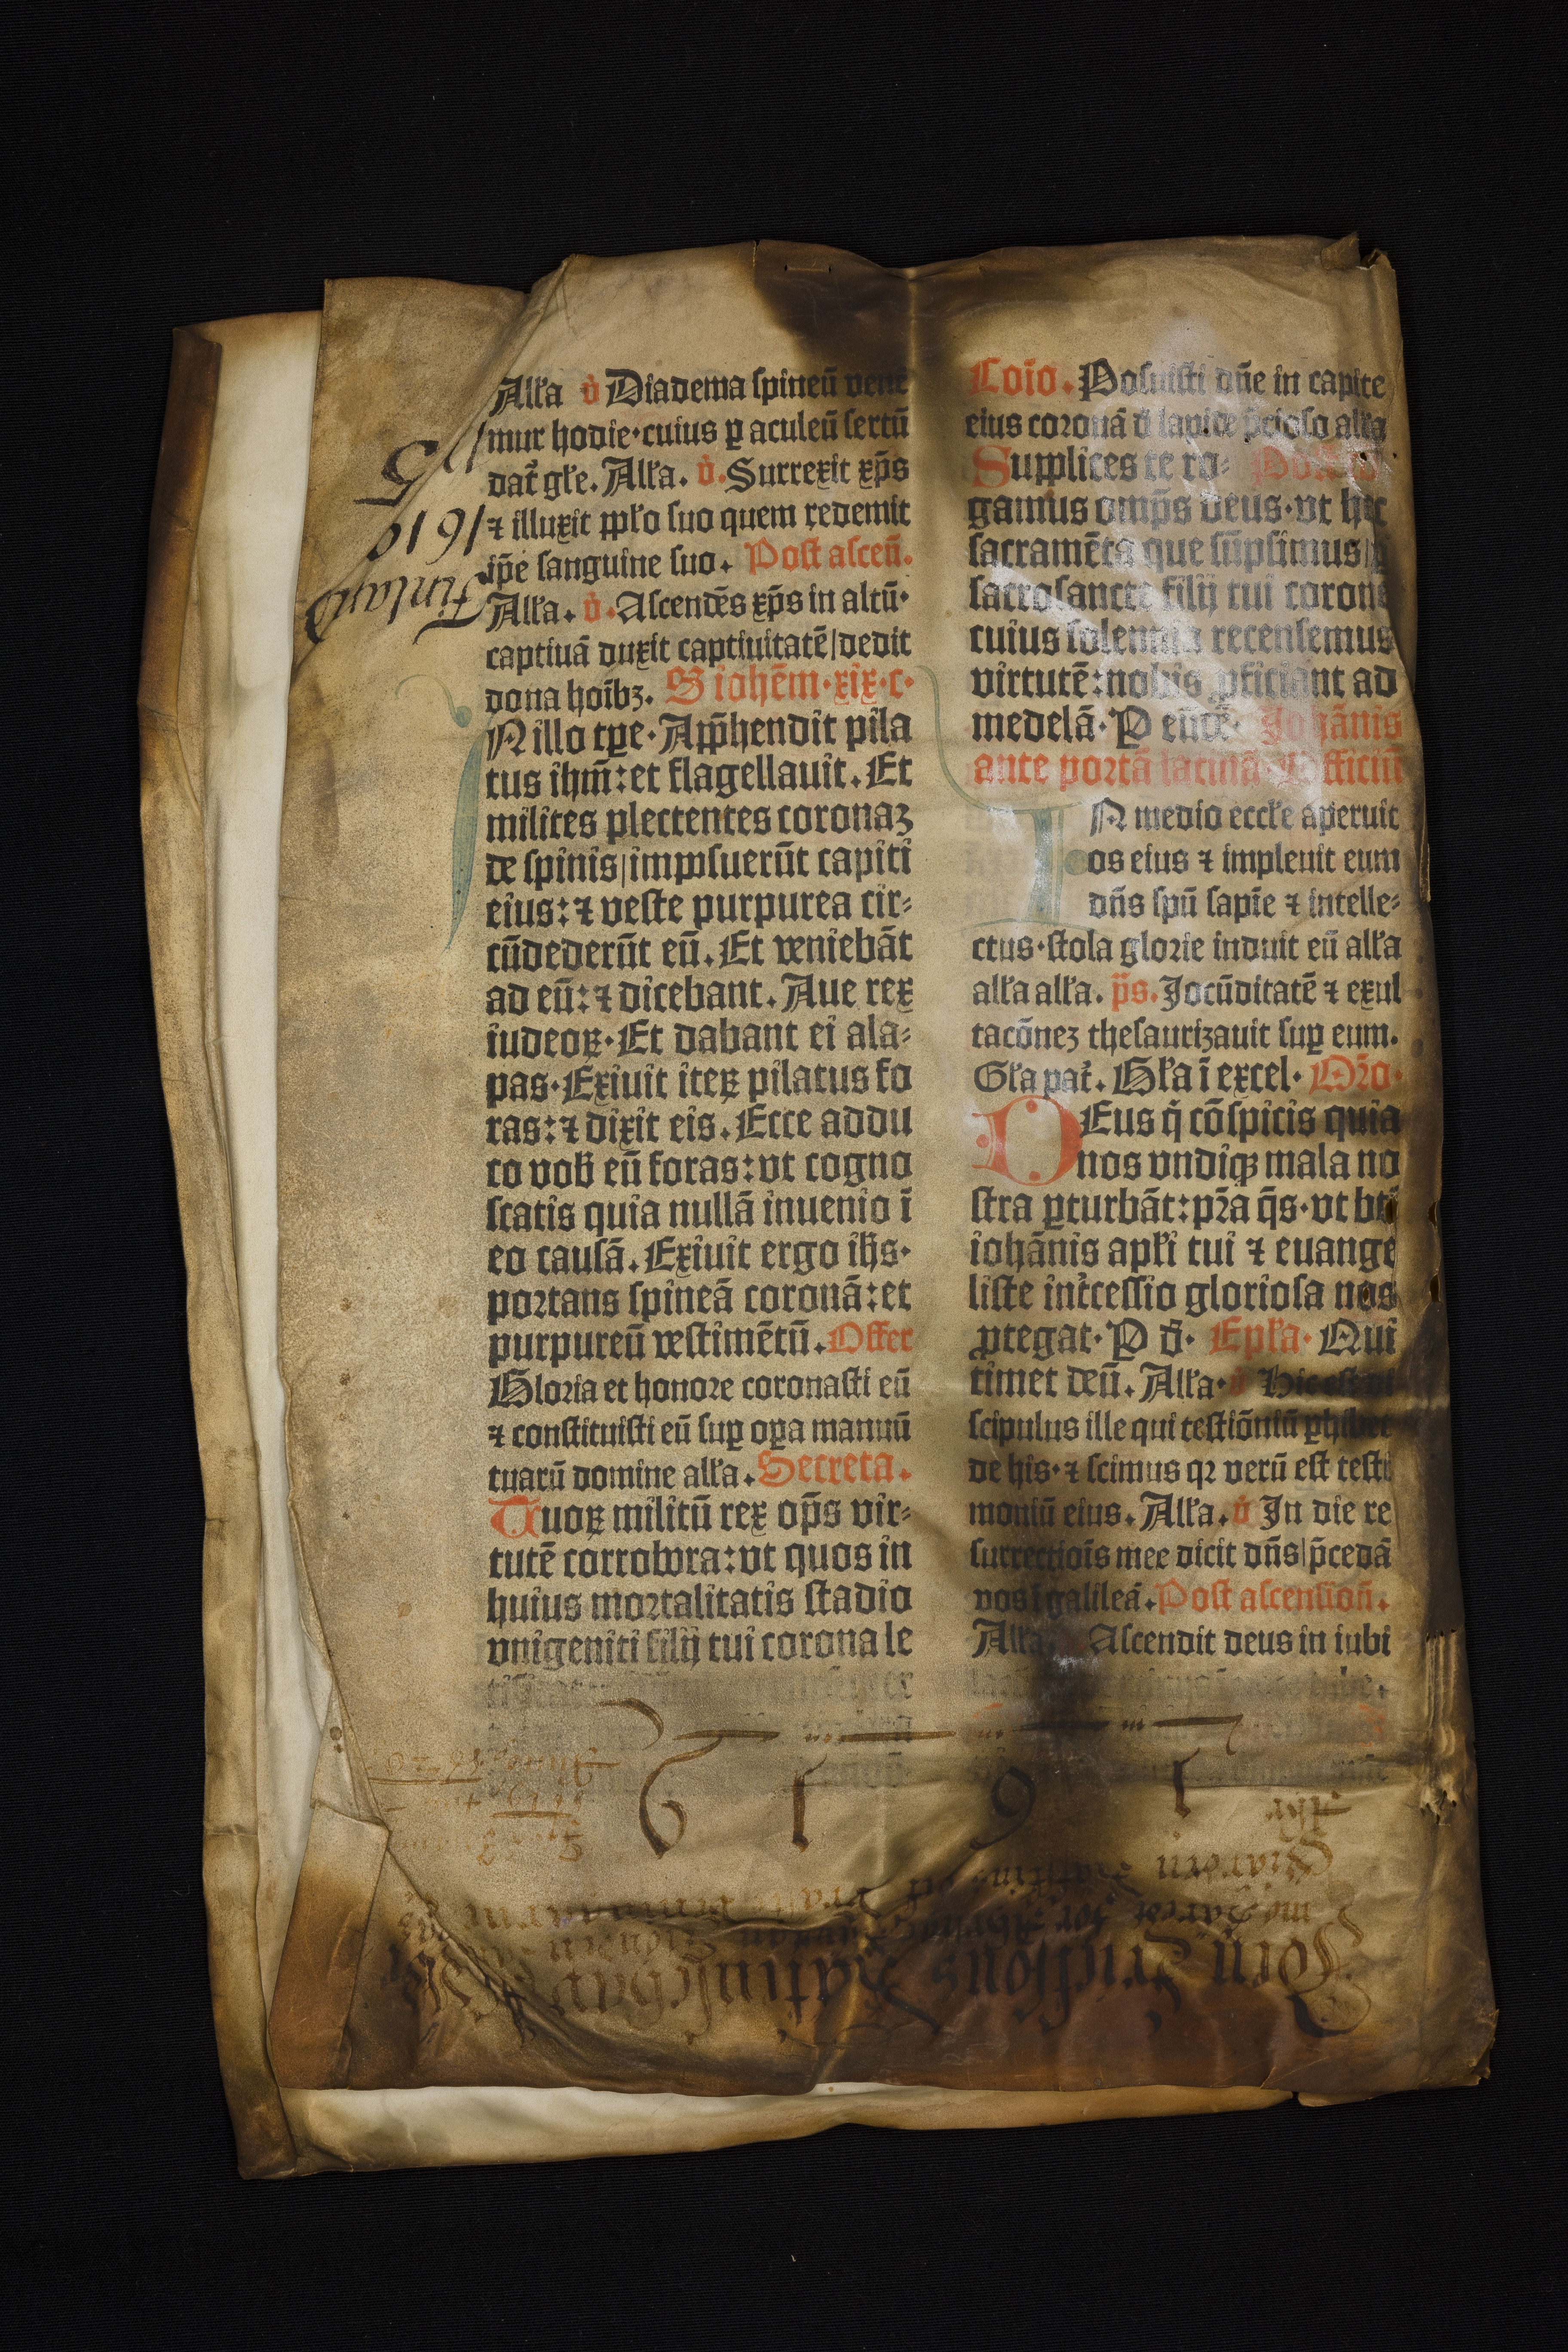 Alľa ů Diadema spineū vene
mur hodie·cuius ꝑ aculeū sertū
dat̄ gľe. Alľa. ů. Surrexit xp̄s
⁊ illuxit ppľo suo quem redemit
ip̄e sanguine suo. Post ascen̄.
Alľa. ů. Ascendēs xp̄s in altū·
captiuā duxit captiuitatē/dedit
dona hoībꝫ. S iohēm·xix·c·
IN illo tꝑe·App̄hendit pila
tus ihm̄:et flagellauit. Et
milites plectentes coronaꝫ
de spinis/imposuerūt capiti
eius:⁊ veste purpurea cir⸗
cūdederūt eū. Et veniebāt
ad eū:⁊ dicebant. Aue rex
iudeoꝝ·Et dabant ei ala⸗
pas·Exiuit iteꝝ pilatus fo
ras:⁊ dixit eis. Ecce addu
co vob̄ eū foras:vt cogno
scatis quia nullā inuenio ī
eo causā. Exiuit ergo ih̄s·
portans spineā coronā:et
purpureū vestimētū. Offer
Gloria et honore coronasti eū
⁊ constituisti eū suꝑ oꝑa manuū
tuarū domine alľa. Secreta.
Tuoꝝ militū rex op̄s vir⸗
tutē corrobora:vt quos in
huius mortalitatis stadio
vnigeniti filij tui corona le
Coīo. Posuisti dn̄e in capite
eius coronā d̄ lapide p̄cioso alľa
Supplices te ro⸗
gamus omp̄s deus·vt hec
sacramēta que sūpsimus/
sacrosancte filij tui corone
cuius solennia recensemus
virtutē:nobis ꝓficiant ad
medelā·P eūdē· Johānis
ante portā latinā Officiū
IN medio eccľe aperuit
os eius ⁊ impleuit eum
dn̄s spū sapīe ⁊ intelle⸗
ctus·stola glorie induit eū alľa
alľa alľa. p̄s. Jocūditatē ⁊ exul
tacōneꝫ thesaurizauit suꝑ eum.
Gľa pat̄. Gľa ī excel· Or̄o·
DEus q̄ cōspicis quia
nos vndiqꝫ mala no
stra ꝑturbāt:pr̄a q̄s·vt bt̄i
iohānis apľi tui ⁊ euange
liste int̄cessio gloriosa nos
ꝓtegat·P d̄· Epľa· Qui
timet deū. Alľa· ů Hic est di
scipulus ille qui testiōniū ꝑhibet
de his·⁊ scimus qꝛ verū est testi
moniū eius. Alľa. ů In die re
surrectiois mee dicit dn̄s/p̄cedā
vos ī galileā. Post ascension̄.
Alľa. Ascendit deus in iubi
5
1619
Finland
1 6 1 9
Jören Erichssons